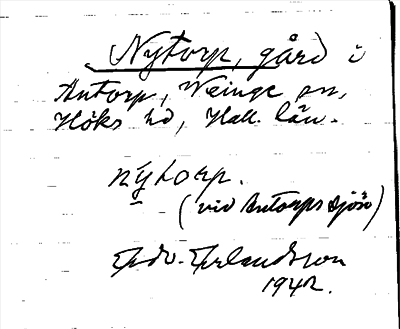 Nytorp, gård i
Antorp, Weinge sn,
Höks hd, Hall. län.
nytorp.
(vid Antorps sjön)
Edv. Erlandsson
1942.